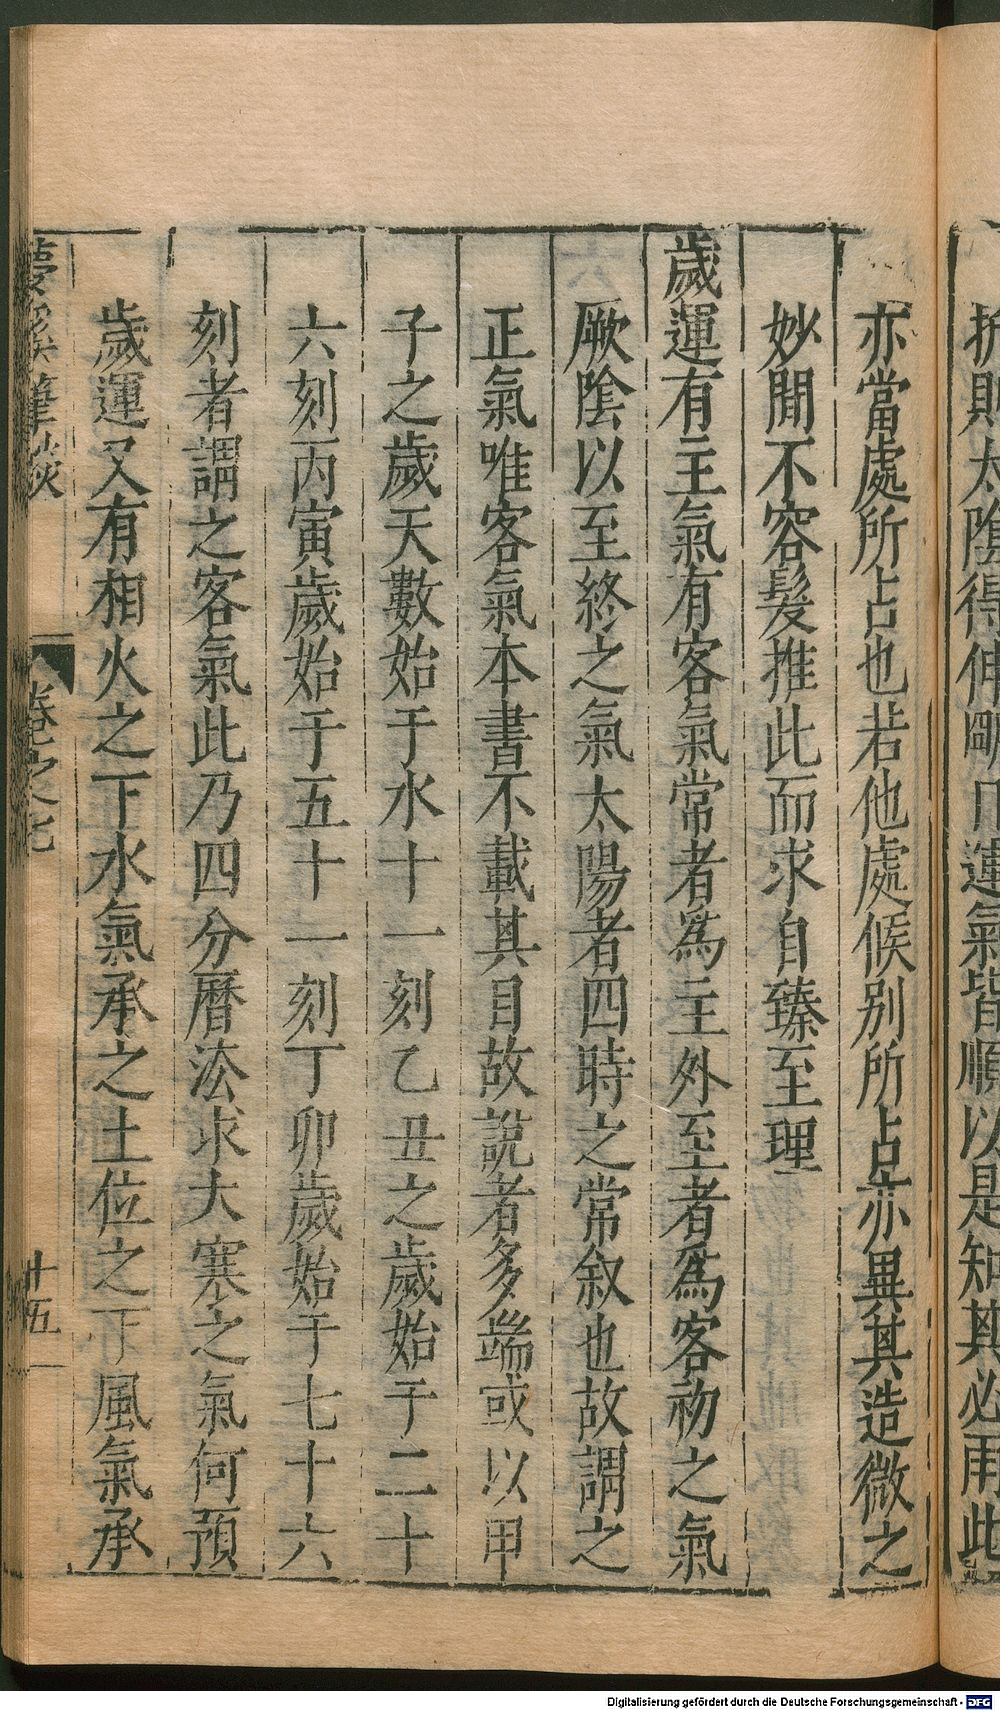 折則太陰得伸
運氣皆順以是知其必雨此
亦當處所占也若他處候别所占亦異其造微之
妙間不容髮推此而求自臻至理
歲運有主氣有客氣常者爲主外至者爲客初之氣
厥陰以至終之氣太陽者四時之常叙也故謂之
正氣唯客氣本書不載其目故說者多端或以甲
子之歲天數始于水十一刻乙丑之歲始于二十
六刻丙寅歲始于五十一刻丁卯歲始于七十六
刻者謂之客氣此乃四分曆法求大寒之氣何預
歲運又有相火之下水氣承之土位之下風氣承
夢溪筆談 卷之七 十五
Digitalisierung gefördert durch die Deutsche Forschungsgemeinschaft - DFG